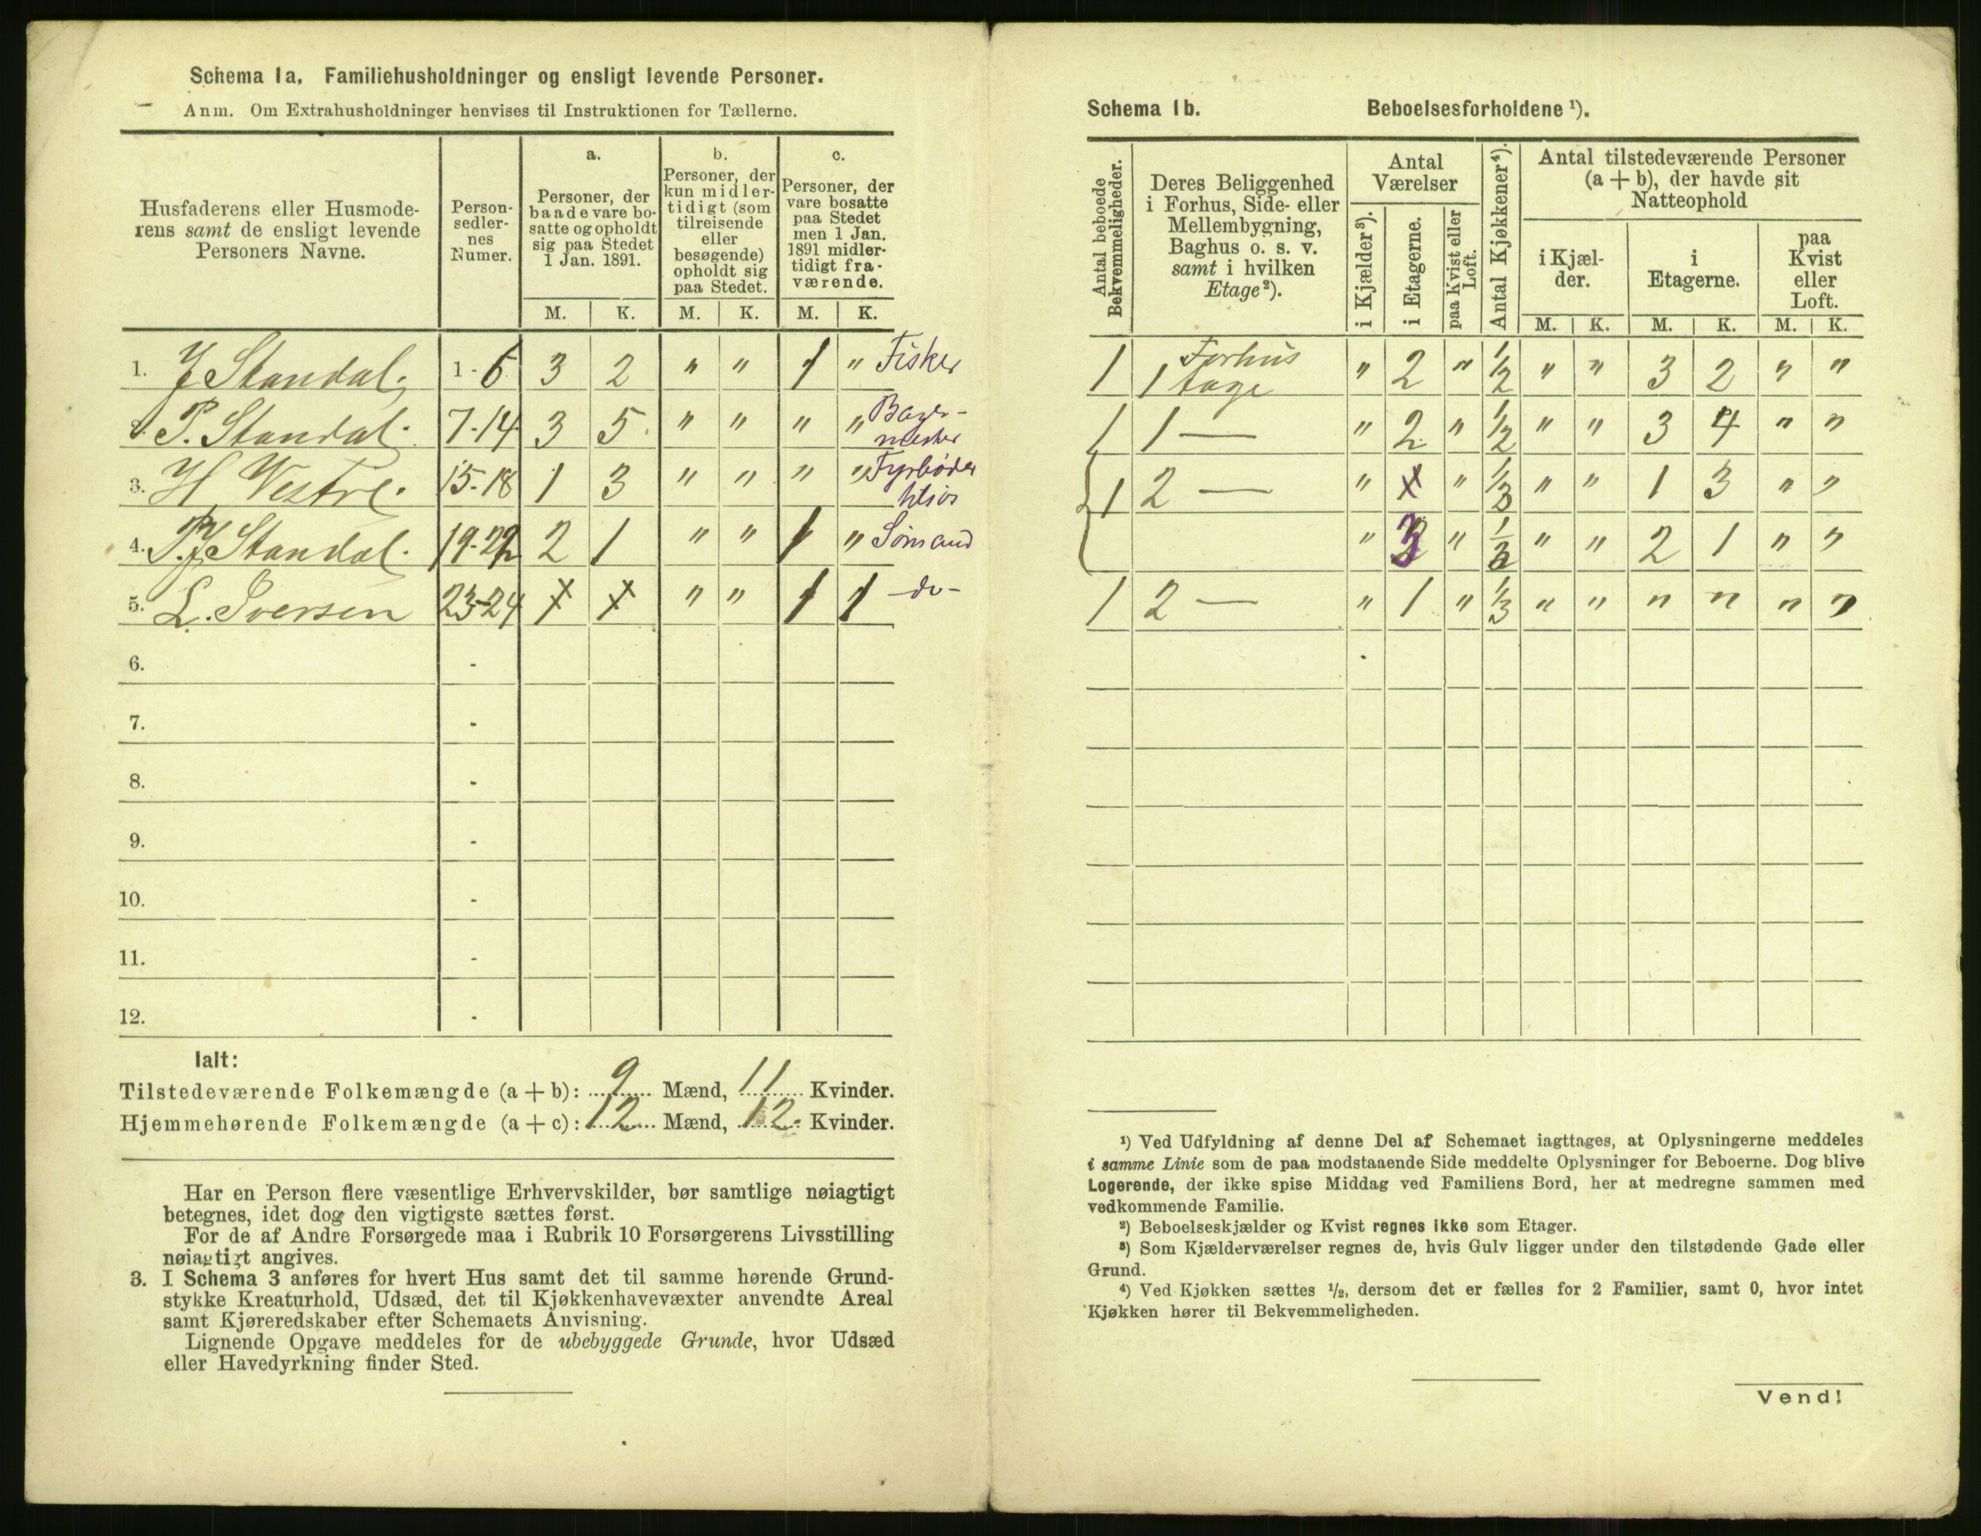 Schema 1a. Familiehusholdninger og ensligt levende Personer.
Anm. Om Extrahusholdninger henvises til Instruktionen for Tællerne.
Husfaderens eller Husmoderens samt de ensligt levende Personers Navne. | Personsedlernes Numer. | a. Personer, der baade vare bosatte og opholdt sig paa Stedet 1 Jan. 1891. | b. Personer, der kun midlertidigt (som tilreisende eller besøgende) opholdt sig paa Stedet. | c. Personer, der vare bosatte paa Stedet men 1 Jan. 1891 midlertidigt fraværende.
M. K. M. K. M. K.
1. J Standal. 1-6 3 2 " " 1 " Fisker
2. P. Standal. 7-14 3 5 " " " " Bagermester
3. H Vestre. 15-18 1 3 " " " " Fyrbøder
4. P.J Standal. 19-22 2 1 " " 1 " Sømand
5. L. Iversen 23-24 x x " " 1 1 -do-
6. -
7. -
8. -
9. -
10. -
11. -
12. -
Ialt:
Tilstedeværende Folkemængde (a + b): 9 Mænd, 11 Kvinder.
Hjemmehørende Folkemængde (a + c): 12 Mænd, 12 Kvinder.
Har en Person flere væsentlige Erhvervskilder, bør samtlige nøiagtigt
betegnes, idet dog den vigtigste sættes først.
For de af Andre Forsørgede maa i Rubrik 10 Forsørgerens Livsstilling
nøiagtigt angives.
3. I Schema 3 anføres for hvert Hus samt det til samme hørende Grund-
stykke Kreaturhold, Udsæd, det til Kjøkkenhavevæxter anvendte Areal
samt Kjøreredskaber efter Schemaets Anvisning.
Lignende Opgave meddeles for de ubebyggede Grunde, hvor Udsæd
eller Havedyrkning finder Sted.
Schema 1b. Beboelsesforholdene ¹).
Antal beboede Bekvemmeligheder. | Deres Beliggenhed i Forhus, Side- eller Mellembygning, Baghus o. s. v. samt i hvilken Etage ²). | Antal Værelser | i Kjælder ³). | i Etagerne. | paa Kvist eller Loft. | Antal Kjøkkener ⁴). | Antal tilstedeværende Personer (a + b), der havde sit Natteophold | i Kjælder. | i Etagerne. | paa Kvist eller Loft.
M. K. M. K. M. K.
1 Forhus 1 Etage " 2 " 1/2 " " 3 2 " "
1 1 — " 2 " 1/2 " " 3 4 " "
1 2 — " x " 1/3 " " 1 3 " "
" 3 " 1/3 " " 2 1 " "
1 2 — " 1 " 1/3 " " " " " "
¹) Ved Udfyldning af denne Del af Schemaet iagttages, at Oplysningerne meddeles
i samme Linie som de paa modstaaende Side meddelte Oplysninger for Beboerne. Dog blive
Logerende, der ikke spise Middag ved Familiens Bord, her at medregne sammen med
vedkommende Familie.
²) Beboelseskjælder og Kvist regnes ikke som Etager.
³) Som Kjælderværelser regnes de, hvis Gulv ligger under den tilstødende Gade eller
Grund.
⁴) Ved Kjøkken sættes ½, dersom det er fælles for 2 Familier, samt 0, hvor intet
Kjøkken hører til Bekvemmeligheden.
Vend!